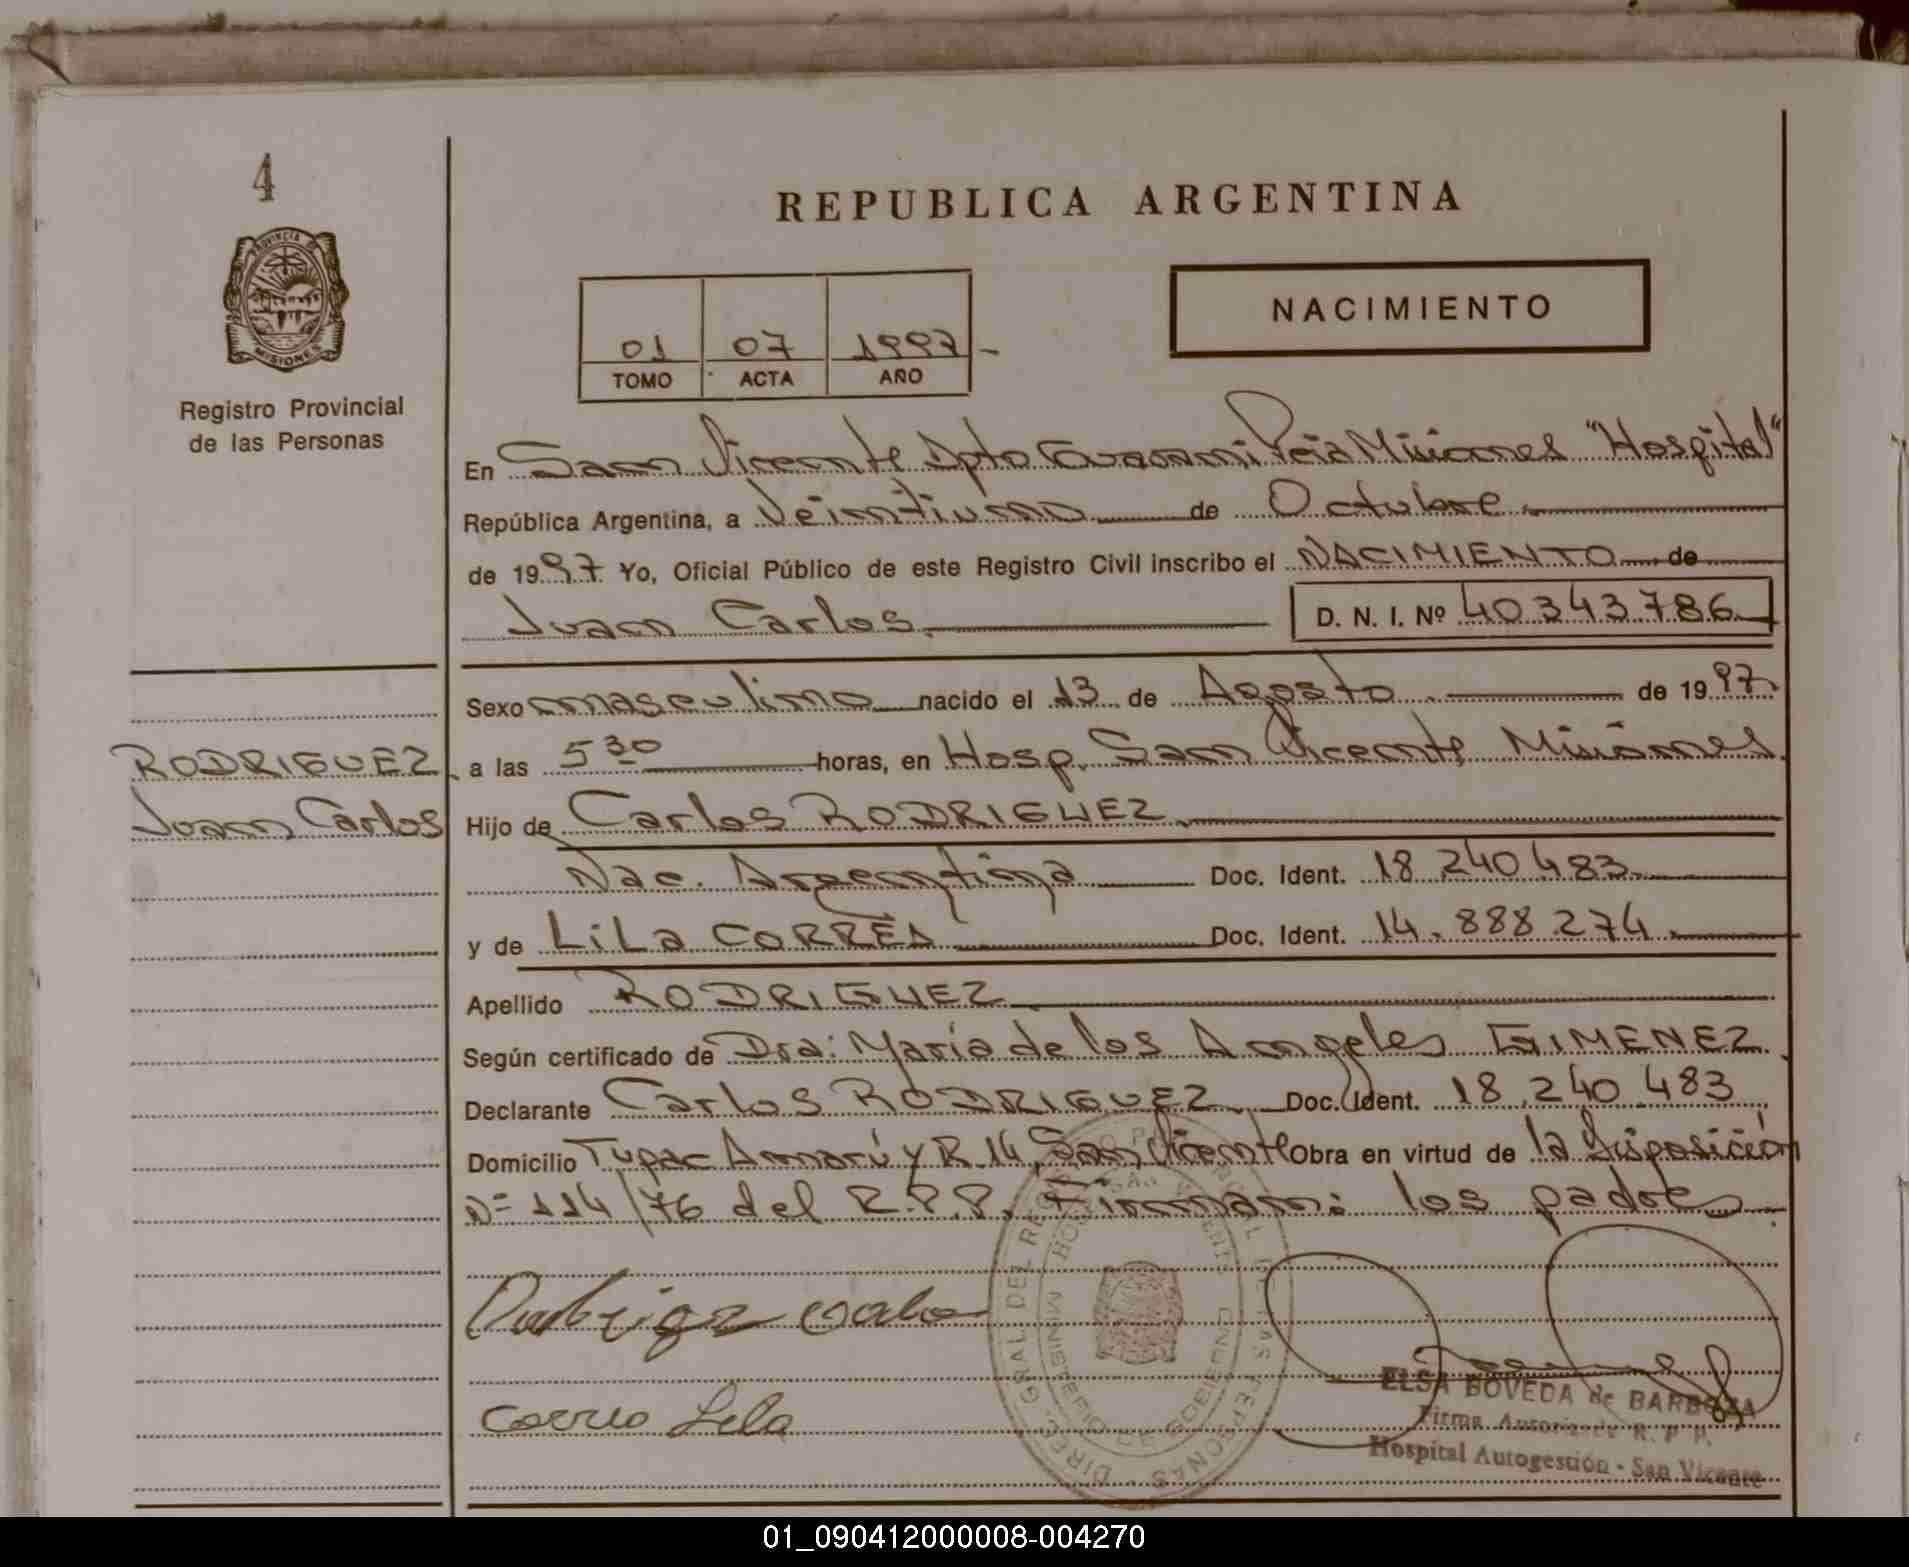 4
PROVINCIA DE
MISIONES
Registro Provincial
de las Personas
REPUBLICA ARGENTINA
01 07 1997 -
TOMO ACTA AÑO
NACIMIENTO
En San Vicente Dpto Guarani Pcia Misiones "Hospital"
República Argentina, a Veintiuno de Octubre
de 1997 Yo, Oficial Público de este Registro Civil inscribo el NACIMIENTO de
Juan Carlos D. N. I. Nº 40.343.786
Sexo masculino nacido el 13 de Agosto de 1997
RODRIGUEZ
Juan Carlos
a las 5 30 horas, en Hosp. San Vicente, Misiones
Hijo de Carlos RODRIGUEZ
Nac. Argentina Doc. Ident. 18.240.483
y de LiLa CORREA Doc. Ident. 14.888.274
Apellido RODRIGUEZ
Según certificado de Dra: María de los Angeles GIMENEZ
Declarante Carlos RODRIGUEZ Doc. Ident. 18.240.483
Domicilio Tupac Amarú y R.14, San Vicente Obra en virtud de la Disposición
Nº 114/76 del R.P.P. Firman: los padres
Correa Lila
ELSA BOVEDA de BARBOZA
Firma Autorizada R. P. P.
Hospital Autogestión - San Vicente
01_090412000008-004270